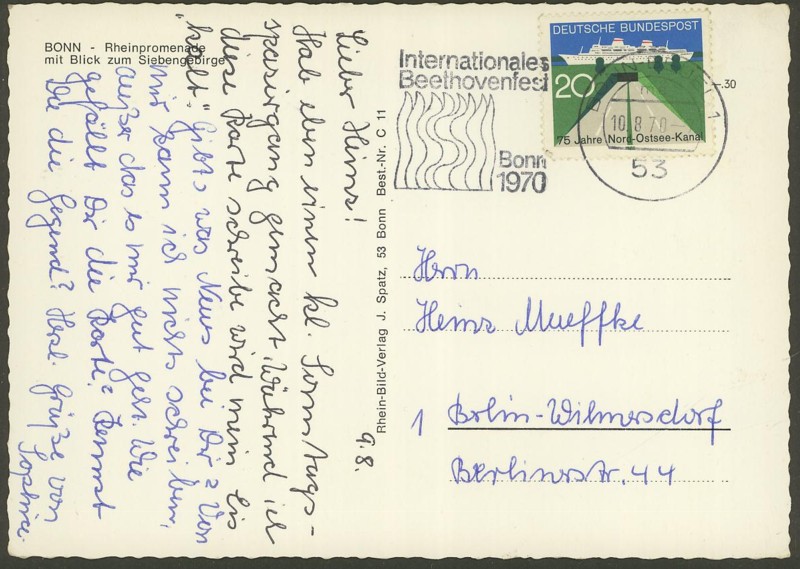 BONN - Rheinpromenade
mit Blick zum Siebengebirge
9.8.
Lieber Heinz!
Hab eben einen kl. Sonntags-
spaziergang gemacht. Während ich
diese Karte schreibe wird mein Eis
"kalt". Gibts was Neues bei Dir? Von
mir kann ich nichts schreiben,
außer das es mir gut geht. Wie
gefällt Dir die Karte? Kennst
Du die Gegend? Herzl. Grüße von
Sophie
Rhein-Bild-Verlag J. Spatz, 53 Bonn Best.-Nr. C 11
Internationales
Beethovenfest
Bonn
1970
DEUTSCHE BUNDESPOST
20
75 Jahre Nord-Ostsee-Kanal
10.8.70
53
Herrn
Heinz Mueffke
1 Berlin-Wilmersdorf
Berlinerstr. 44